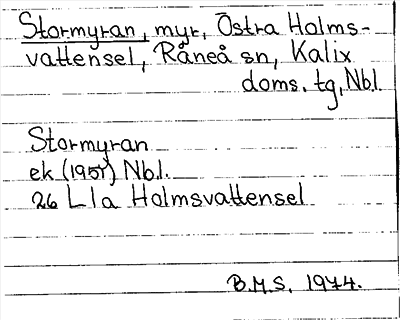 Stormyran, myr, Östra Holms-
vattensel, Råneå sn, Kalix
doms. tg, Nbl.
Stormyran
ek (1957) Nbl.
26 L 1 a Holmsvattensel
B.M.S. 1974.